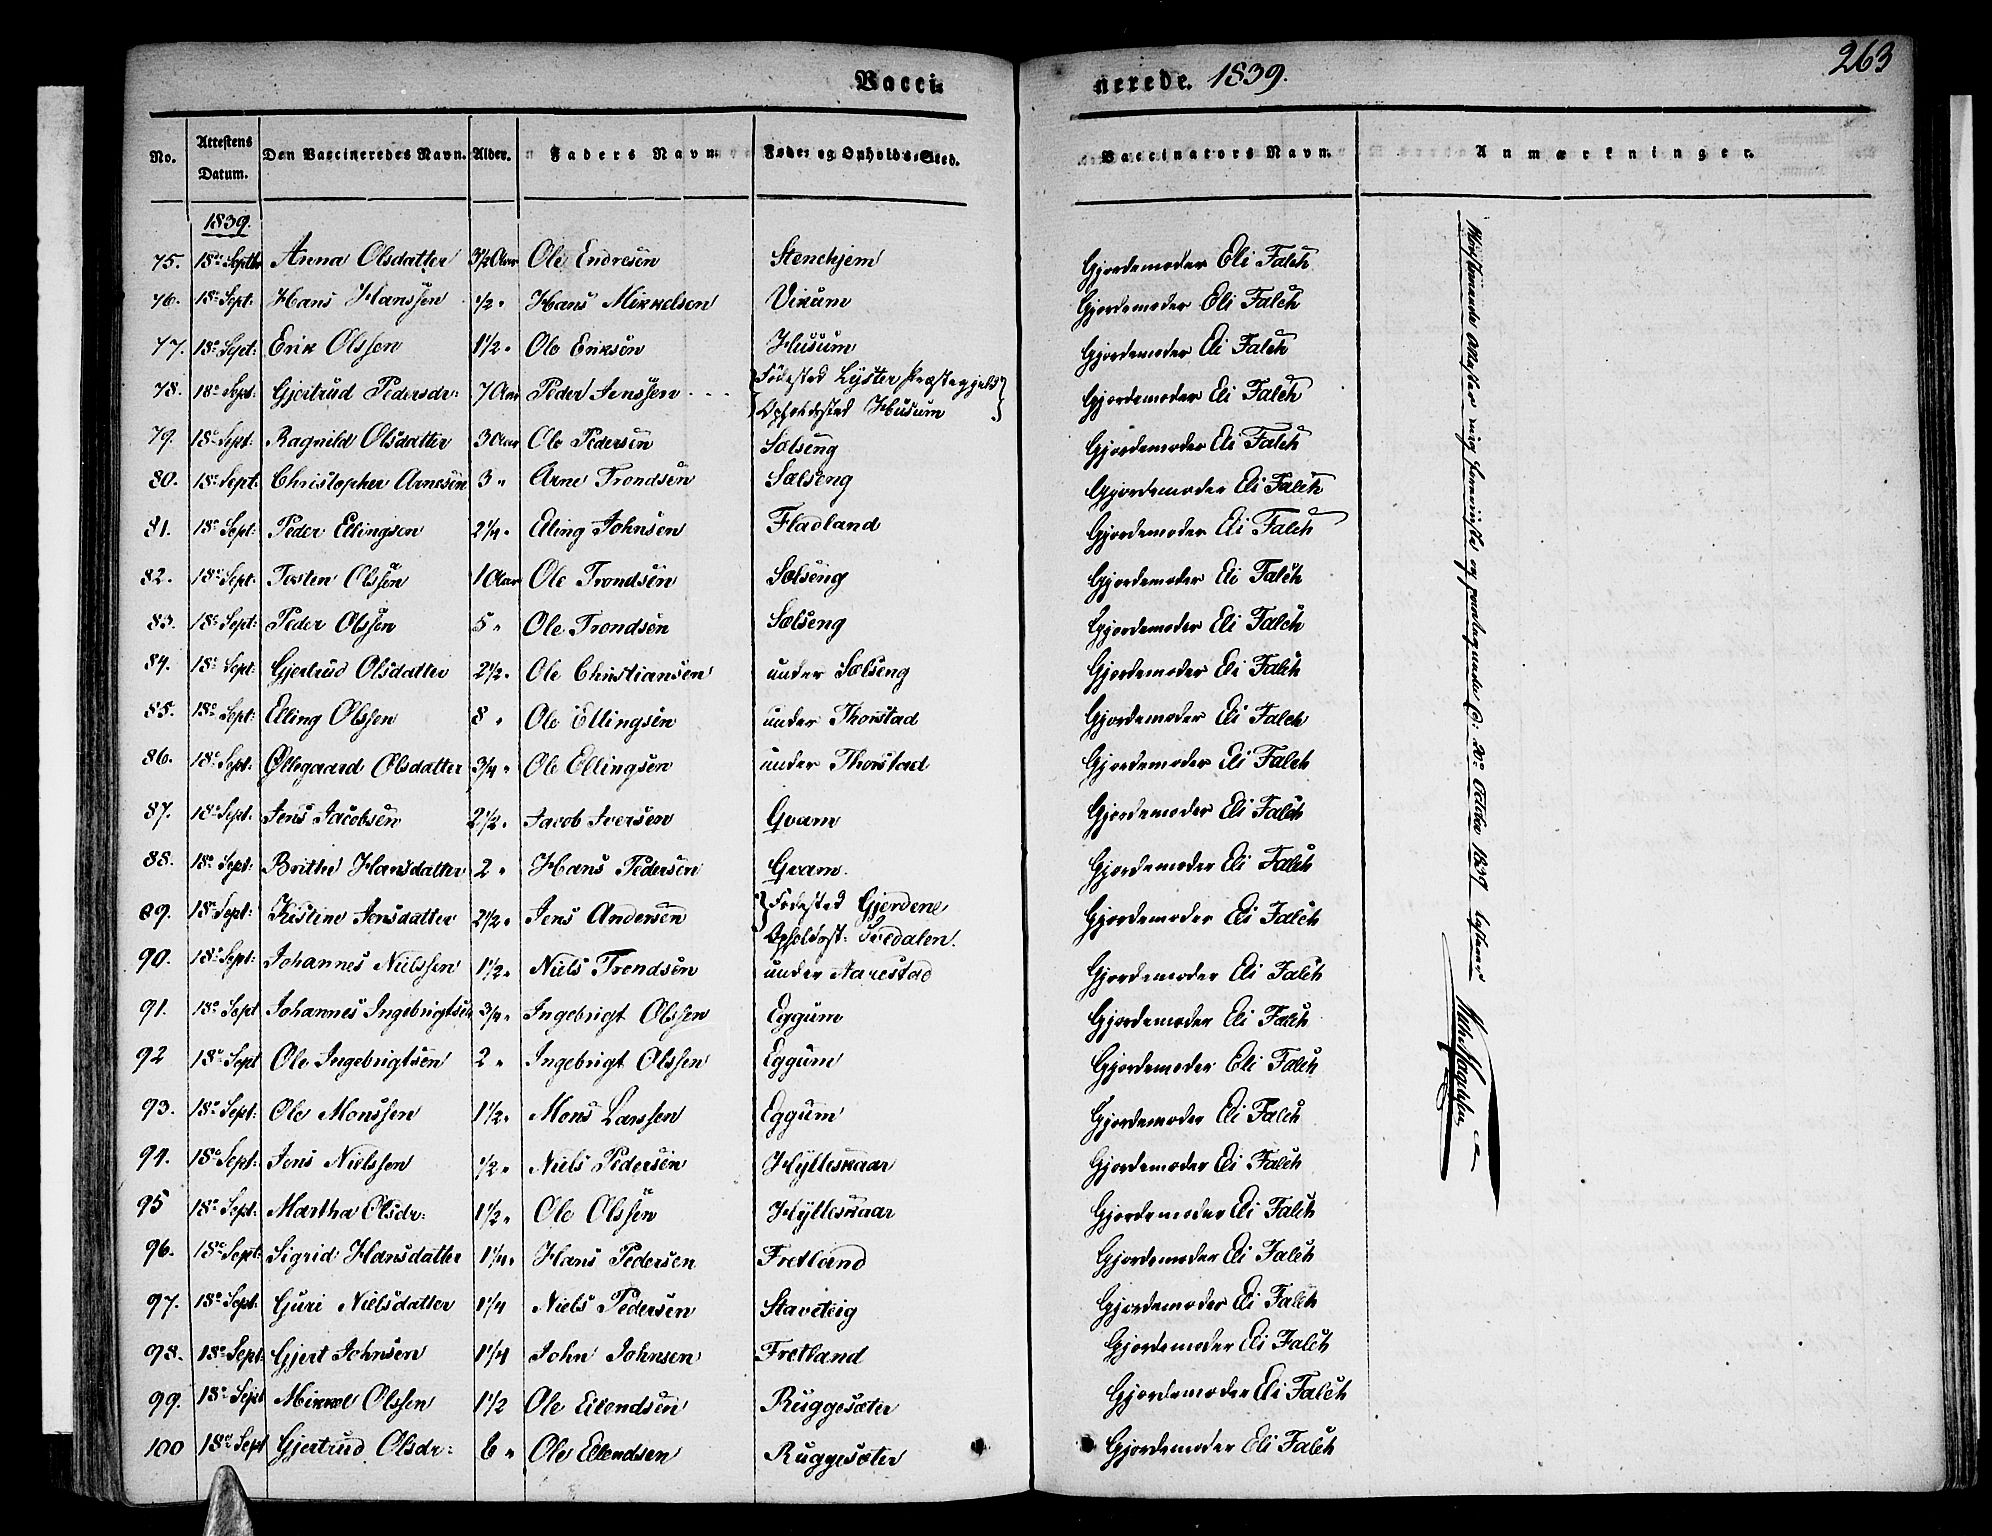 263
Vacci- nerede. 1839.
No. Attestens Datum. Den Vaccineredes Navn. Alder. Faders Navn Føde- og Opholds-Sted. Vaccinators Navn. Anmærkninger.
1839.
75. 18de Septbr Anna Olsdatter 3/2 Aar Ole Endresen Stenehjem Gjordemoder Eli Falch
76. 18de Sept: Hans Hanssen 1/2 " Hans Mikkelsen Vikum Gjordemoder Eli Falch
77. 18de Sept: Erik Olssen 1 1/2 " Ole Eriksen Husum Gjordemoder Eli Falch
78. 18de Sept: Gjertrud Pedersdr: 7 Aar Peder Jenssen Fødested Lyster Præstegjeld Gjordemoder Eli Falch
Opholdssted Husum
79. 18de Sept: Ragnild Olsdatter 3 Aar Ole Pedersen Sælseng Gjordemoder Eli Falch
80. 18de Sept: Christopher Arnesen 3 " Arne Trondsen Sælseng Gjordemoder Eli Falch
81. 18de Sept: Peder Ellingsen 2 1/4 " Elling Johnsen Fladland Gjordemoder Eli Falch
82. 18de Sept: Tosten Olssen 1 Aar Ole Trondsen Sælseng Gjordemoder Eli Falch
83. 18de Sept: Peder Olssen 5 " Ole Trondsen Sælseng Gjordemoder Eli Falch
84. 18de Sept: Gjertrud Olsdatter 2 1/2 " Ole Christiansen under Sælseng Gjordemoder Eli Falch
85. 18de Sept: Elling Olssen 8 " Ole Ellingsen under Thorstad Gjordemoder Eli Falch
86. 18de Sept: Øllegaard Olsdatter 3/4 " Ole Ellingsen under Thorstad Gjordemoder Eli Falch
87. 18de Sept: Jens Jacobsen 2 1/2 " Jacob Iversen Qvam Gjordemoder Eli Falch
88. 18de Sept: Brithe Hansdatter 2 " Hans Pedersen Qvam. Gjordemoder Eli Falch
89. 18de Sept: Kistine Jensdatter 2 1/2 " Jens Andersen Fødested Gjerdene Gjordemoder Eli Falch
Opholdsst:
90. 18de Sept: Johannes Nielssen 1 1/2 " Niels Trondsen under Aarestad Gjordemoder Eli Falch
91. 18de Sept Johannes Ingebrigtsen 3/4 " Ingebrigt Olssen Eggum Gjordemoder Eli Falch
92 18de Sept Ole Ingebrigtsen 2 " Ingebrigt Olssen Eggum Gjordemoder Eli Falch
93. 18de Sept: Ole Monssen 1 1/2 " Mons Larssen Eggum Gjordemoder Eli Falch
94. 18de Sept: Jens Nielssen 1/2 " Niels Pedersen Hylleskaar Gjordemoder Eli Falch
95 18de Sept: Martha Olsdr: 1 1/2 " Ole Olssen Hylleskaar Gjordemoder Eli Falch
96. 18de Sept: Sigrid Hansdatter 1 1/4 " Hans Pedersen Fretland Gjordemoder Eli Falch
97. 18de Sept: Guri Nielsdatter 1 1/4 Niels Pedersen Staveteig Gjordemoder Eli Falch
98. 18de Sept: Gjert Johnsen 1 1/4 John Johnsen Fretland Gjordemoder Eli Falch
99. 18de Sept Mikkel Olssen 1 1/2 Ole Eilendsen Ruggesæter Gjordemoder Eli Falch
100 18de Sept Gjertrud Olsdr: 6 " Ole Ellendsen Ruggesæter Gjordemoder Eli Falch
mig og 20de October 1839